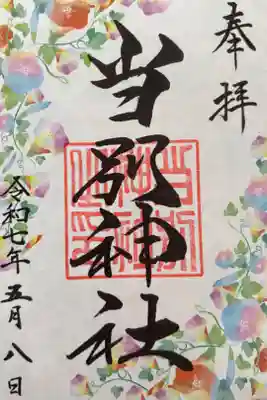 奉拝
当別神社
令和七年五月八日